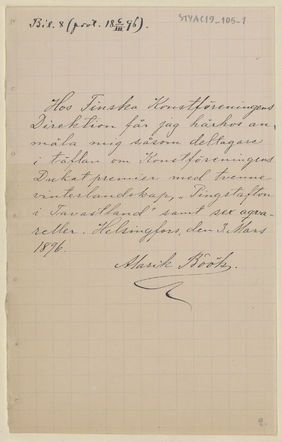 Bil. 8 (prot. 18 6/III 96).
STYAC19-105-1
Hos Finska Konstföreningens
Direktion får jag härhos an-
mäla mig såsom deltagare
i täflan om Konstföreningens
Dukatpremier med tvenne
vinterlandskap, "Pingstafton
i Tavastland" samt sex aqva-
reller. Helsingfors, den 3. Mars
1896.
Alarik Böök.